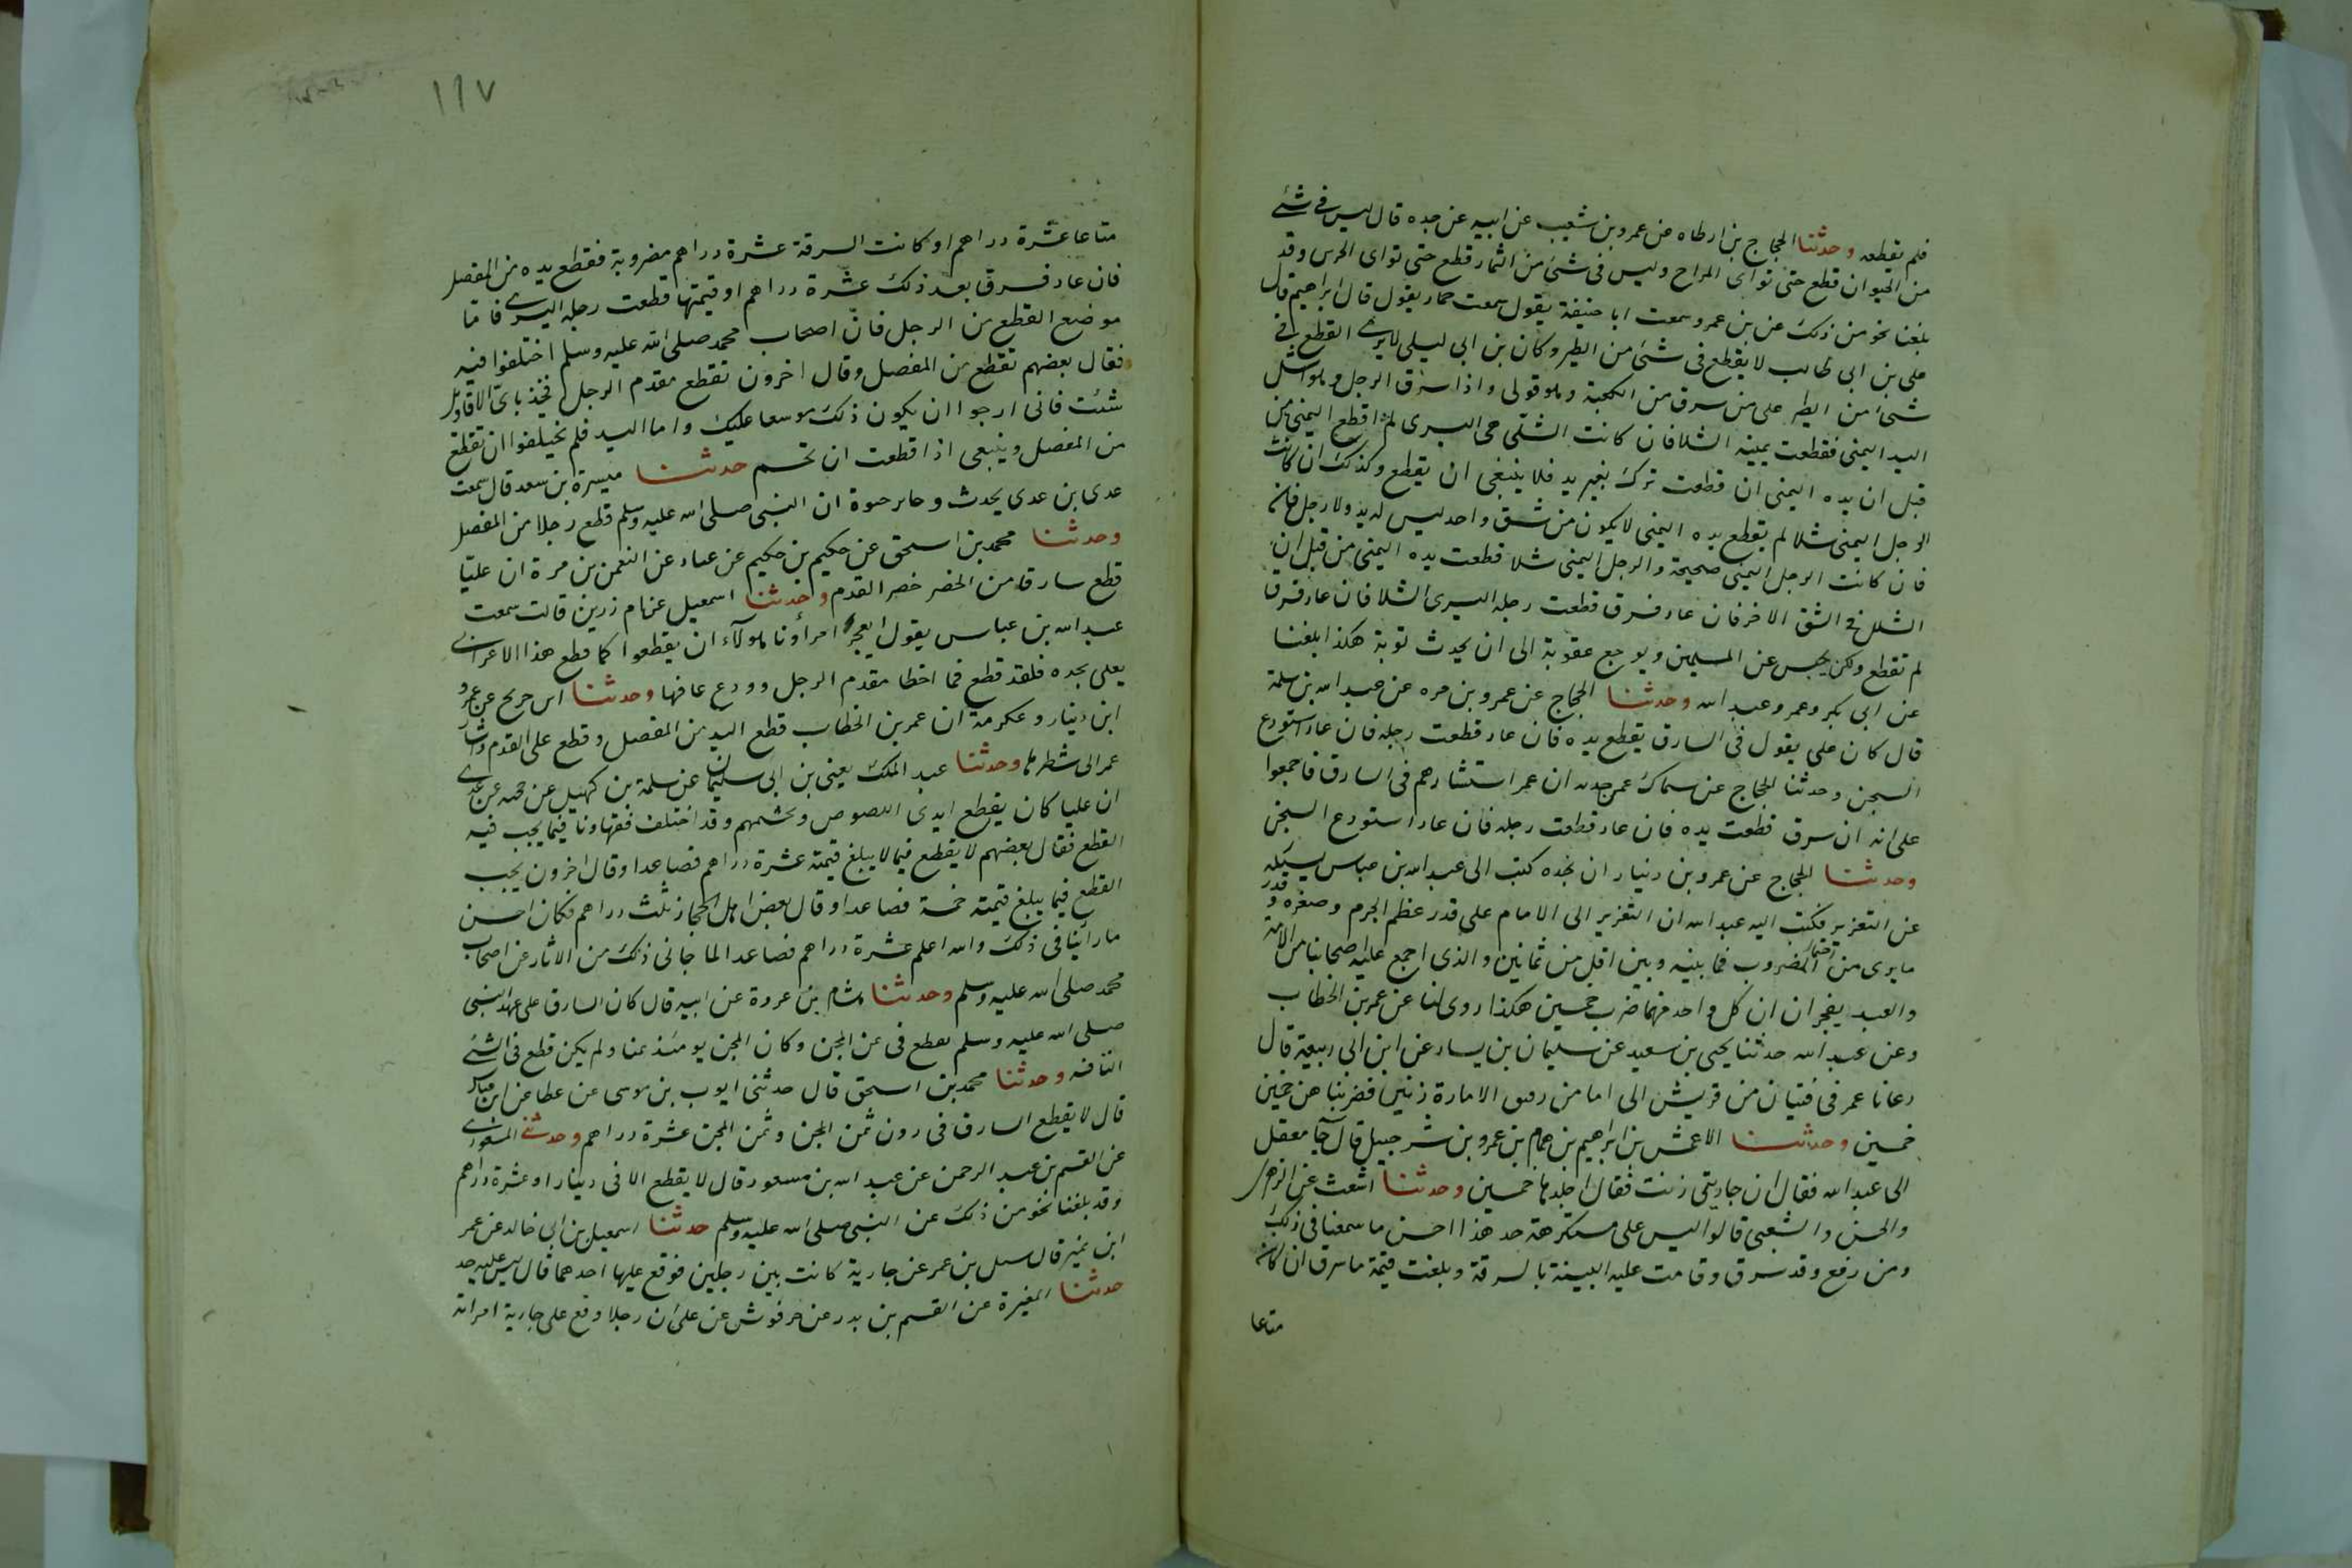 فلم يقطعه وحدثنا الحجاج بن ارطاه عن عمرو بن شعيب عن ابيه عن جده قال ليس فى شئ
من الحيوان قطع حتى تواى المراح وليس فى شئ من الثمار قطع حتى تواى الجرس وقد
بلغنا نحو من ذلك عن بن عمر وسمعت ابا حنيفة يقول سمعت حماد يقول قال ابراهيم قال
على بن ابى طالب لا يقطع فى شئ من الطير وكان بن ابى ليلى لا يرى القطع فى
شئ من الطير على من سرق من الكعبة وهو قولى واذا سرق الرجل وهو اشل
اليد اليمنى فقطعت يمينه الشلا فان كانت الشلى هى اليسرى لم اقطع اليمنى من
قبل ان يده اليمنى ان قطعت ترك بغير يد فلا ينبغى ان يقطع وكذلك ان كانت
الرجل اليمنى شلا لم يقطع يده اليمنى لا يكون من شق واحد ليس له يد ولا رجل فان
فان كانت الرجل اليمنى صحيحة والرجل اليمنى شلا قطعت يده اليمنى من قبل ان
الشلل فى الشق الاخر فان عاد فسرق قطعت رجله اليسرى الشلا فان عاد فسرق
لم تقطع ولكن يحبس عن المسلمين ويوجع عقوبة الى ان يحدث توبة هكذا بلغنا
عن ابى بكر وعمر وعبد الله وحدثنا الحجاج عن عمرو بن مره عن عبد الله بن سلمة
قال كان على يقول فى السارق يقطع يده فان عاد قطعت رجله فان عاد استودع
السجن وحدثنا الحجاج عن سماك عمن حدثه ان عمر استشارهم فى السارق فاجمعوا
على انه ان سرق قطعت يده فان عاد قطعت رجله فان عاد استودع السجن
وحدثنا الحجاج عن عمرو بن دينار ان نجده كتب الى عبد الله بن عباس يسئله
عن التعزير فكتب اليه عبد الله ان التعزير الى الامام على قدر عظم الجرم وصغره وقدر
ما يرى من احتمال المضروب فما بينه وبين اقل من ثمانين والذى اجمع عليه اصحابنا من الامة
والعبد يفجران ان كل واحد منهما ضرب خمسين هكذا روى لنا عن عمر بن الخطاب
وعن عبد الله حدثنا يحيى بن سعيد عن سليمان بن يسار عن ابن ابى ربيعة قال
دعانا عمر فى فتيان من قريش الى اما من رقيق الامارة زنين فضربناهن خمسين
خمسين وحدثنا الاعمش بن ابراهيم بن همام بن عمرو بن شرحبيل قال جآ معقل
الى عبد الله فقال ان جاريتى زنت فقال اجلدها خمسين وحدثنا اشعث عن الزهرى
والحسن والشعبى قالوا ليس على مستكرهة حد هذا احسن ما سمعنا فى ذلك
ومن رفع وقد سرق وقامت عليه البينة بالسرقة وبلغت قيمة ما سرق ان كان
متاعا
١١٧
متاعا عشرة دراهم او كانت السرقة عشرة دراهم مضروبة فقطع يده من المفصل
فان عاد فسرق بعد ذلك عشرة دراهم او قيمتها قطعت رجله اليسرى فاما
موضع القطع من الرجل فان اصحاب محمد صلى الله عليه وسلم اختلفوا فيه
فقال بعضهم تقطع من المفصل وقال اخرون تقطع مقدم الرجل فخذ باى الاقاويل
شئت فانى ارجوا ان يكون ذلك موسعا عليك واما اليد فلم يختلفوا ان تقطع
من المفصل وينبغى اذا قطعت ان تحسم حدثنا ميسرة بن سعد قال سمعت
عدى بن عدى يحدث رجا بن حيوة ان النبى صلى الله عليه وسلم قطع رجلا من المفصل
وحدثنا محمد بن اسحق عن حكيم بن حكيم عن عباد عن النعمن بن مرة ان عليا
قطع سارقا من الخصر خصر القدم وحدثنا اسمعيل عن ام زرين قالت سمعت
عبد الله بن عباس يقول ايعجز امراؤنا هولآء ان يقطعوا كما قطع هذا الاعرابى
يعنى نجده فلقد قطع فما اخطا مقدم الرجل وودع عاقبها وحدثنا ابن جريج عن عمرو
ابن دينار وعكرمة ان عمر بن الخطاب قطع اليد من المفصل وقطع على القدم واشار
عمر الى شطرها وحدثنا عبد الملك يعنى بن ابى سليمان عن سلمة بن كهيل عن حجيه عن عدى
ان عليا كان يقطع ايدى اللصوص ويحسمهم وقد اختلف فقهاونا فيما يجب فيه
القطع فقال بعضهم لا يقطع فيما لا يبلغ قيمته عشرة دراهم فصاعدا وقال اخرون يجب
القطع فيما يبلغ قيمته خمسة فصاعدا وقال بعض اهل الحجاز ثلث دراهم فكان احسن
ما رأينا فى ذلك والله اعلم عشرة دراهم فصاعدا لما جانى ذلك من الاثار عن اصحاب
محمد صلى الله عليه وسلم وحدثنا هشام بن عروة عن ابيه قال كان السارق على عهد النبى
صلى الله عليه وسلم يقطع فى ثمن المجن وكان المجن يومئذ ثمنا ولم يكن قطع فى الشئ
التافه وحدثنا محمد بن اسحق قال حدثنى ايوب بن موسى عن عطا عن ابن عباس
قال لا يقطع السارق فى دون ثمن المجن وثمن المجن عشرة دراهم وحدثنى المسعودى
عن القسم بن عبد الرحمن عن عبد الله بن مسعود قال لا يقطع الا فى دينار او عشرة دراهم
وقد بلغنا نحو من ذلك عن النبى صلى الله عليه وسلم حدثنا اسمعيل بن ابى خالد عن عمر
ابن نمير قال سئل بن عمر عن جارية كانت بين رجلين فوقع عليها احدهما قال ليس عليه حد
حدثنا المغيرة عن القسم بن بدر عن حرفوش عن على ان رجلا وقع على جارية امراته